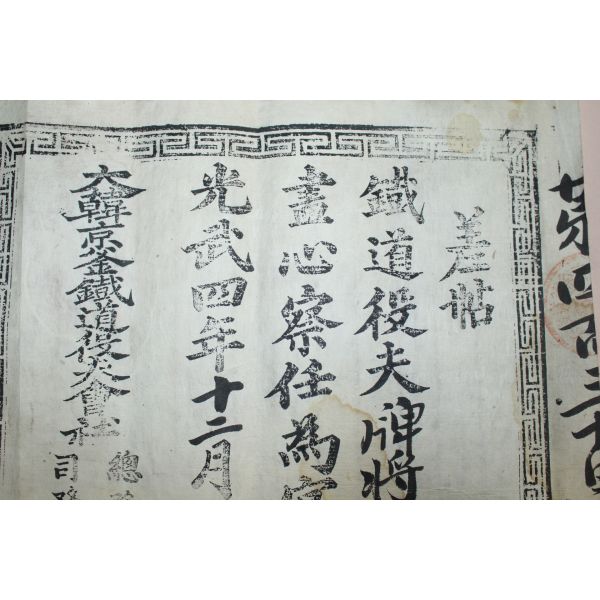 第四百三十
差帖
鐵道役夫牌將
盡心察任爲宜
光武四年十二月
大韓京釜鐵道役夫會社
總
司